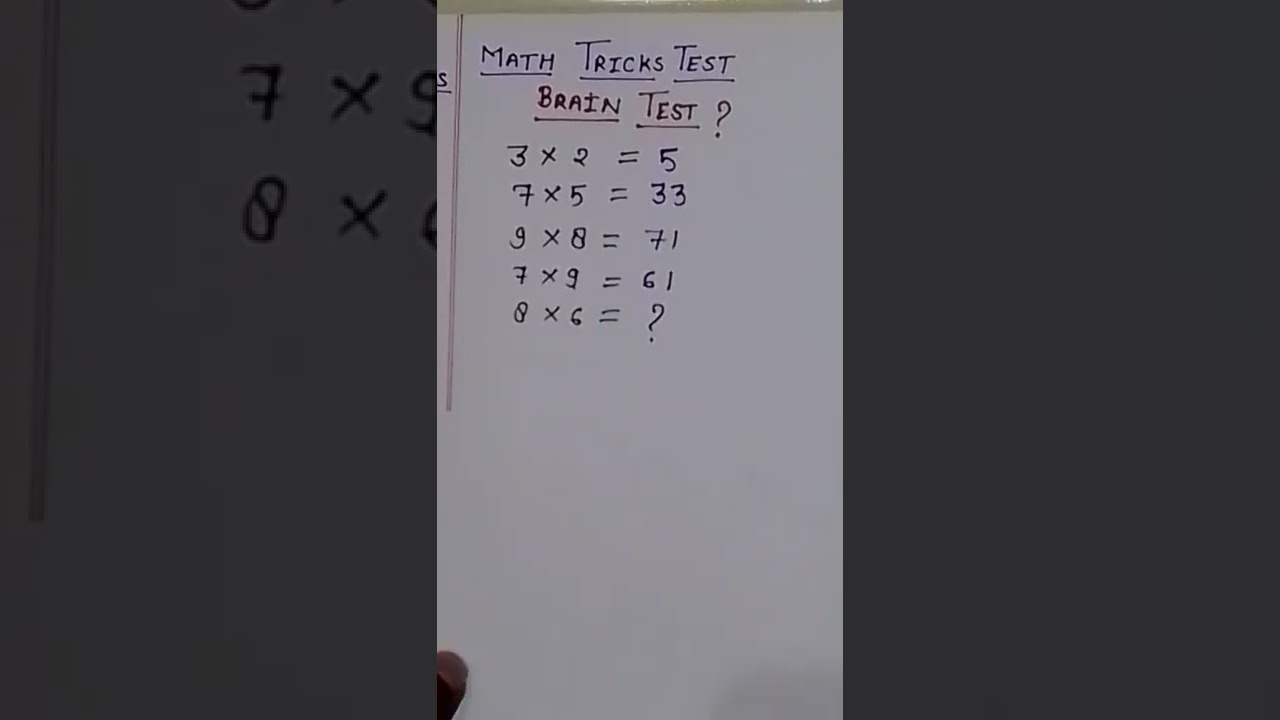 MATH TRICKS TEST
BRAIN TEST ?
3 × 2 = 5
7 × 5 = 33
9 × 8 = 71
7 × 9 = 61
8 × 6 = ?
S
7 × 9
8 ×